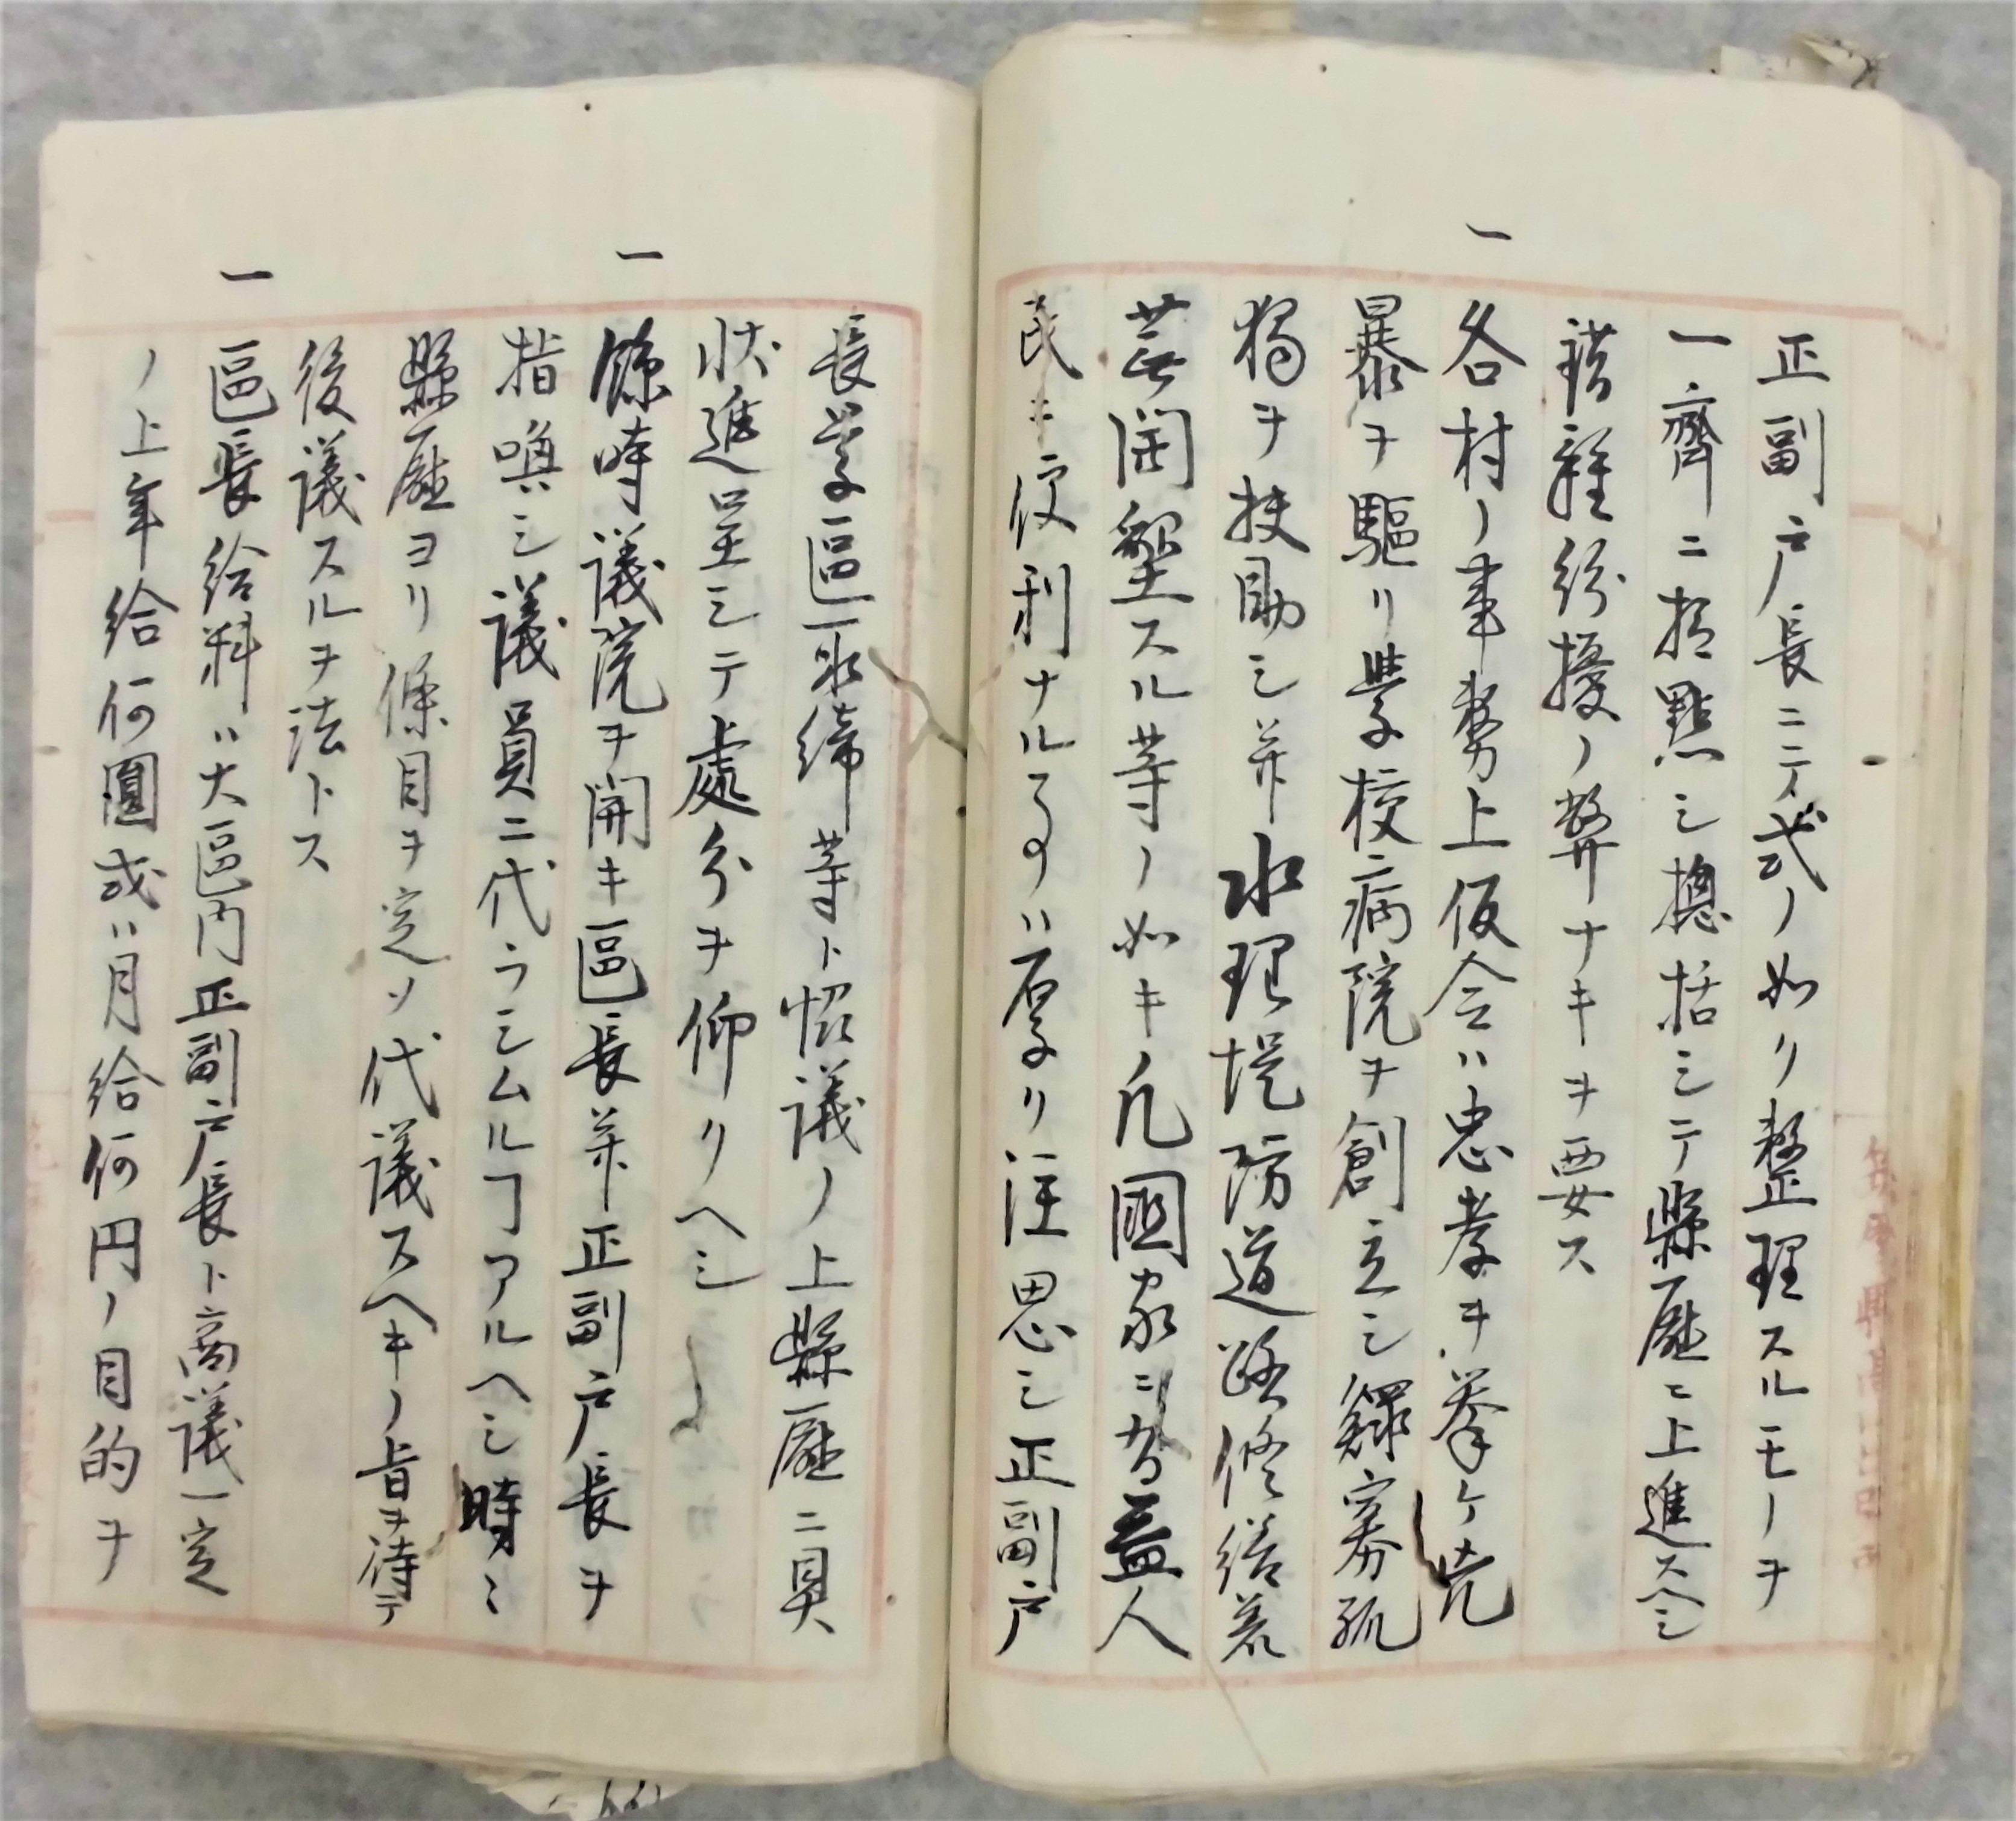 正副戸長ニテ式ノ如リ整理スルモノヲ
一齊ニ撿點シ摠括シテ縣廳ニ上進スヘシ
錯雜紛擾ノ弊ナキヲ要ス
一 各村ノ事務上仮令ハ忠孝ヲ挙ケ兇
暴ヲ驅リ學校病院ヲ創立シ鰥寡孤
獨ヲ扶助シ并水理堤防道路修繕荒
蕪開墾スル等ノ如キ凡國家ニ有益人
民ニ便利ナルヿハ厚リ注思シ正副戸
長學區取締等ト協議ノ上縣廳ニ具
状進呈シテ處分ヲ仰リヘシ
一 餘時議院ヲ開キ區長并正副戸長ヲ
指喚シ議員ニ代ラシムルヿアルヘシ時ミ
縣廳ヨリ條目ヲ定ソ代議スヘキノ旨ヲ待テ
後議スルヲ法トス
一 區長給料ハ大區内正副戸長ト商議一定
ノ上年給何圓或ハ月給何円ノ目的ヲ